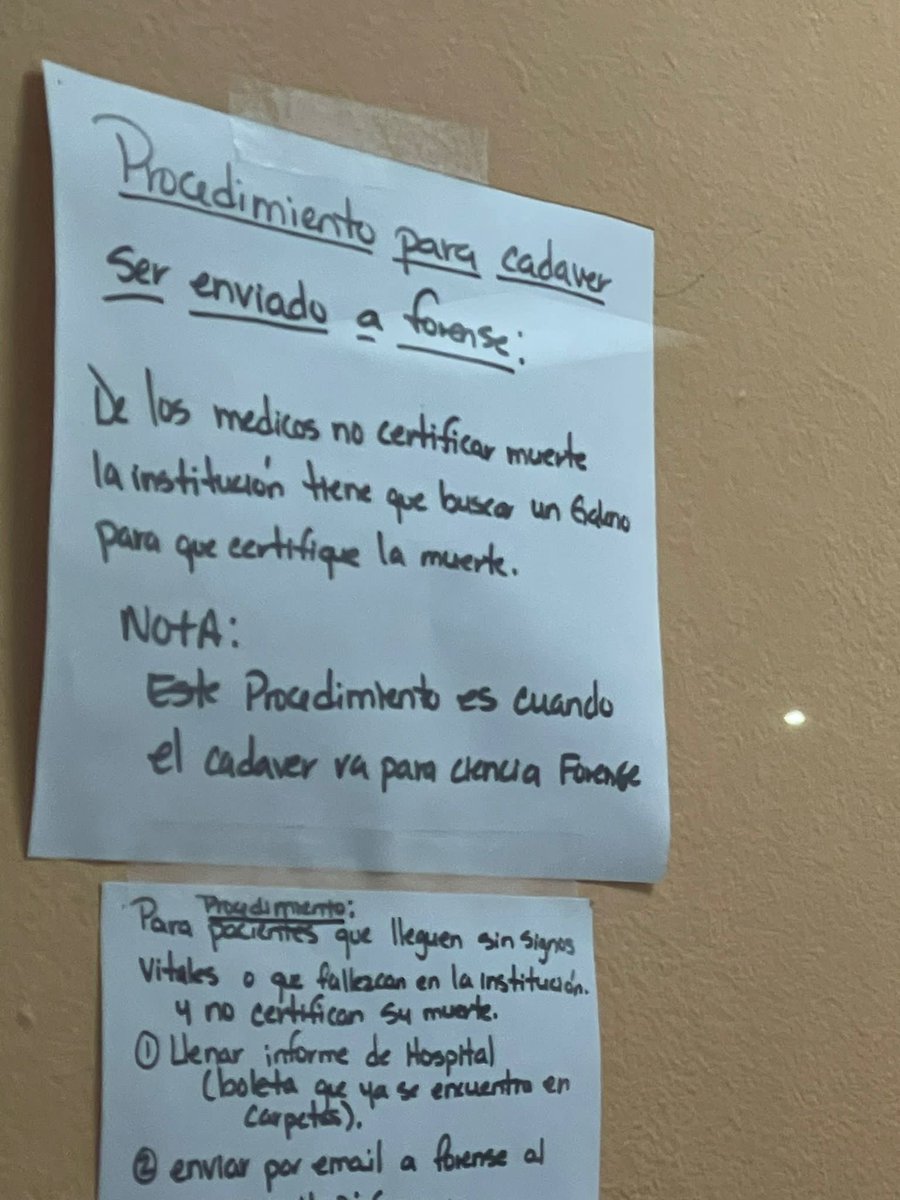 Procedimiento para cadaver
ser enviado a forense:
De los medicos no certificar muerte
la institución tiene que buscar un Galeno
para que certifique la muerte.
NotA:
Este Procedimiento es cuando
el cadaver va para ciencia Forense
Procedimiento:
Para pacientes que lleguen sin signos
Vitales o que fallezcan en la institución.
y no certifican su muerte.
① Llenar informe de Hospital
(boleta que ya se encuentra en
carpetas).
② enviar por email a forense al